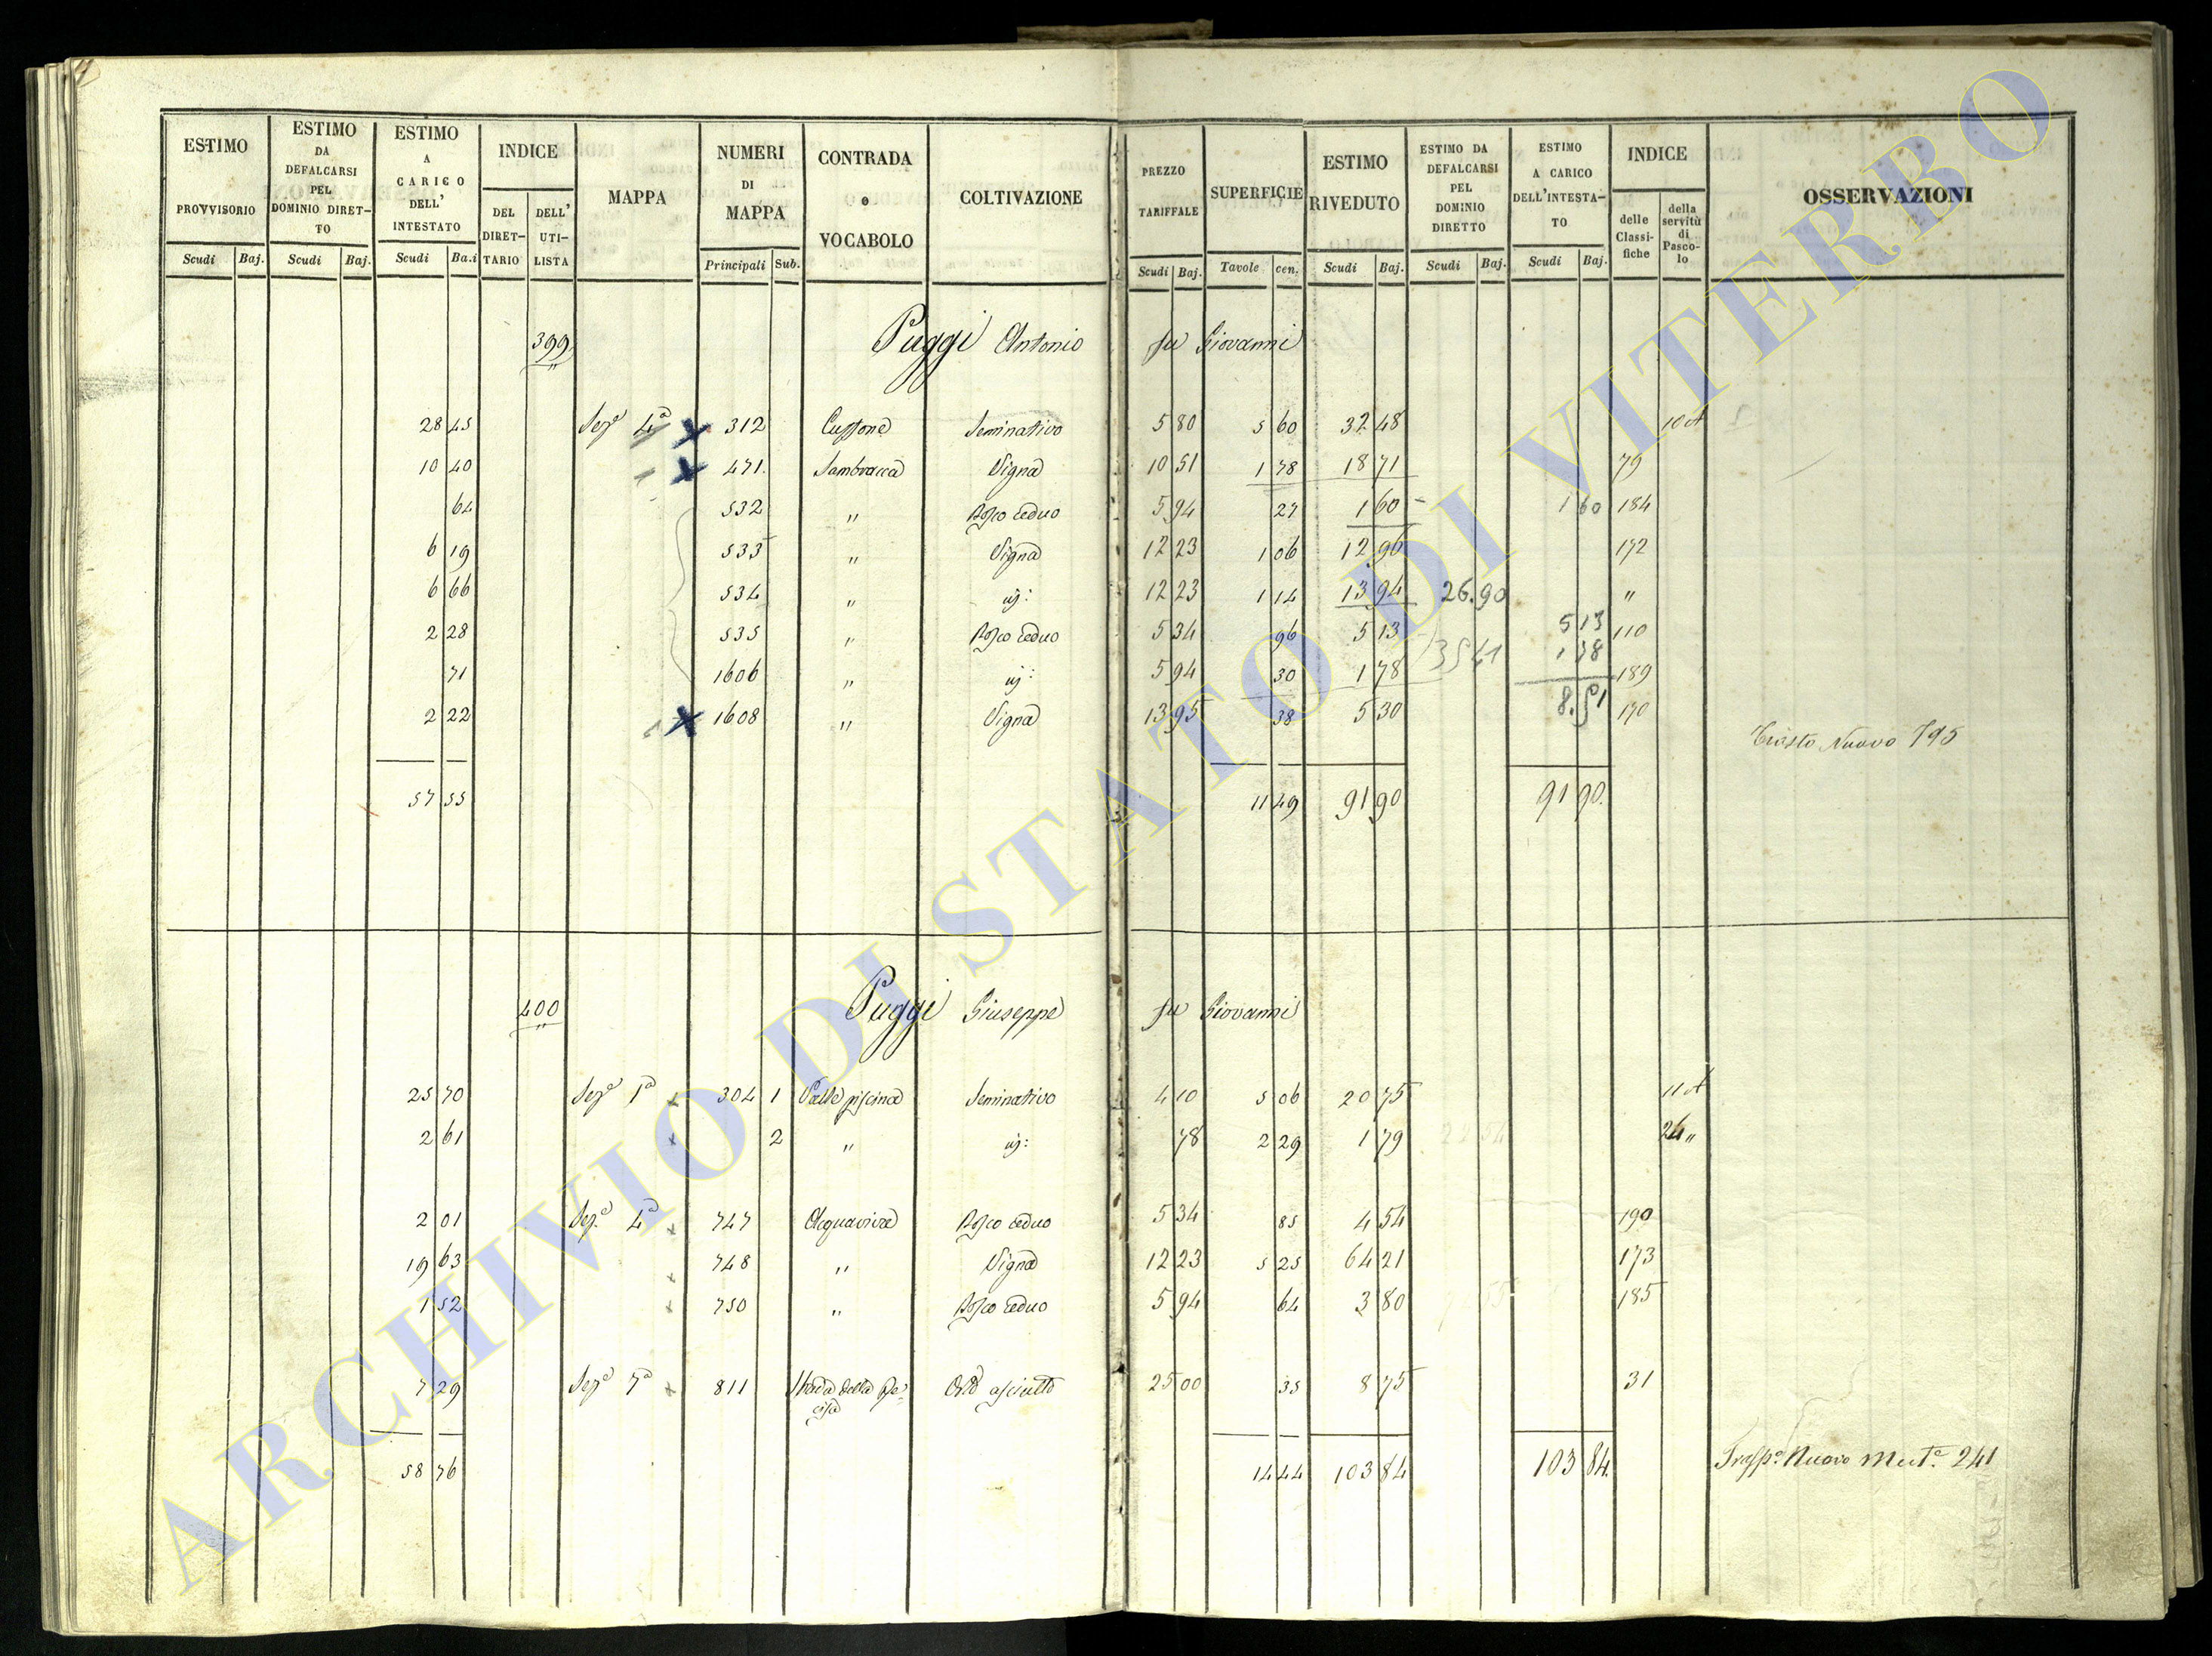 ESTIMO PROVVISORIO Scudi Baj.
ESTIMO DA DEFALCARSI PEL DOMINIO DIRET-TO Scudi Baj.
ESTIMO A CARICO DELL' INTESTATO Scudi Ba.i
INDICE DEL DIRET-TARIO DELL' UTI-LISTA
MAPPA
NUMERI DI MAPPA Principali Sub.
CONTRADA o VOCABOLO
COLTIVAZIONE
PREZZO TARIFFALE Scudi Baj.
SUPERFICIE Tavole cen.
ESTIMO RIVEDUTO Scudi Baj.
ESTIMO DA DEFALCARSI PEL DOMINIO DIRETTO Scudi Baj.
ESTIMO A CARICO DELL'INTESTA-TO Scudi Baj.
INDICE delle Classi-fiche della servitù di Pasco-lo
OSSERVAZIONI
399 Puggi Antonio fu Giovanni
28 45 Sez.e 4a 312 Seminativo 5 80 5 60 32 48 10 A
10 40 471. Sambracca Vigna 10 51 1 78 18 71 79
64 532 " Bosco ceduo 5 94 27 1 60 1 60 184
6 19 533 " Vigna 12 23 1 06 12 96 172
6 66 534 " id: 12 23 1 14 13 94 26.90 "
2 28 535 " Bosco ceduo 5 34 96 5 13 5 13 110
71 1606 " id: 5 94 30 1 78 35 41 189
8.51
2 22 1608 " Vigna 13 95 38 5 30 170
57 55 11 49 91 90 91 90. Nuovo 795
400 Puggi Giuseppe fu Giovanni
25 70 Sez.e 1a 304 1 Valle piscina Seminativo 4 10 5 06 20 75 11 A
2 61 2 " id: 78 2 29 1 79 24 "
2 01 Sez.e 4a 747 Acquaviva Bosco ceduo 5 34 85 4 54 190
19 63 748 " Vigna 12 23 5 25 64 21 173
1 52 750 " Bosco ceduo 5 94 64 3 80 185
7 29 Sez.e 7a 811 Strada della Orto asciutto 25 00 35 8 75 31
58 76 14 44 103 84 103 84. Trasp.o Nuovo Mut.e 241
ARCHIVIO DI STATO DI VITERBO